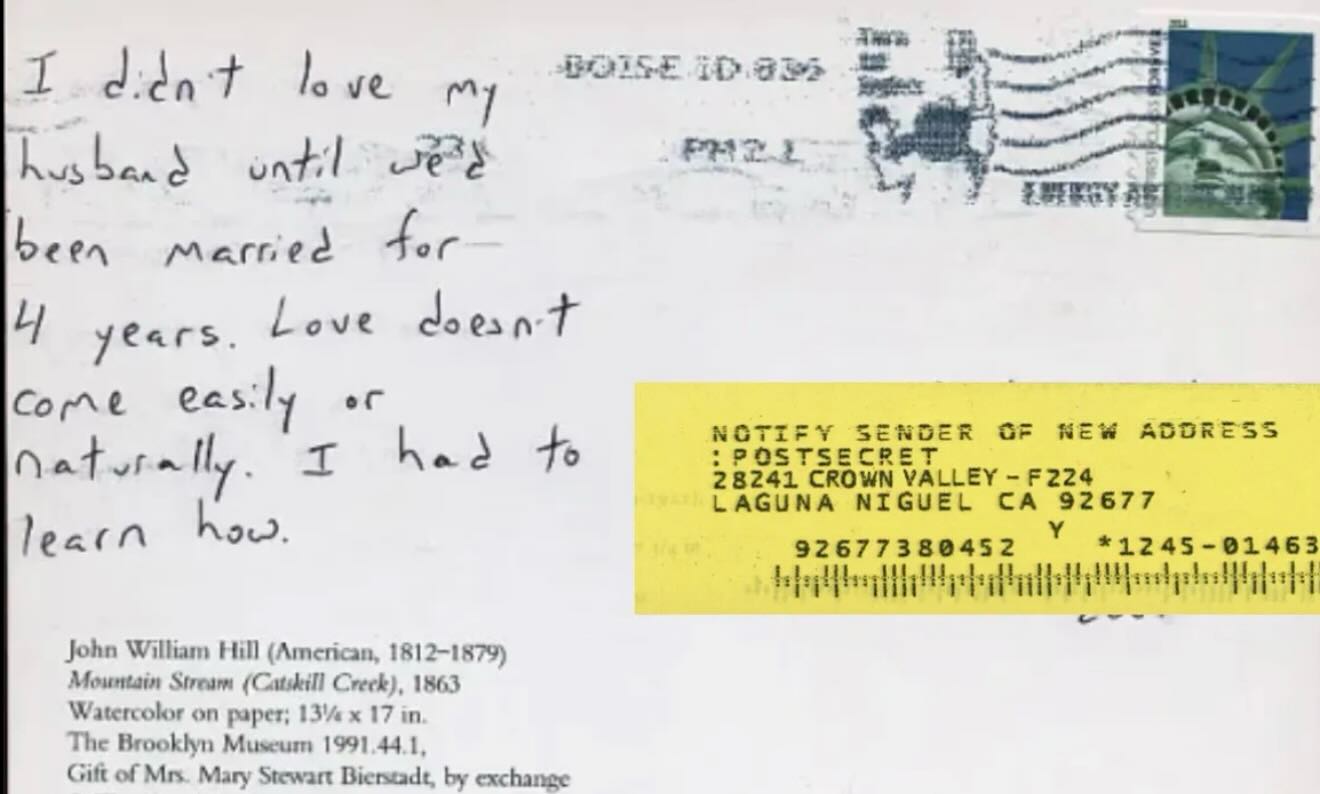 I didn't love my
husband until we'd
been married for
4 years. Love doesn't
come easily or
naturally. I had to
learn how.
BOISE ID 836
PM 2 L
NOTIFY SENDER OF NEW ADDRESS
:POSTSECRET
28241 CROWN VALLEY-F224
LAGUNA NIGUEL CA 92677
Y
92677380452 *1245-01463
John William Hill (American, 1812–1879)
Mountain Stream (Catskill Creek), 1863
Watercolor on paper; 13¼ x 17 in.
The Brooklyn Museum 1991.44.1,
Gift of Mrs. Mary Stewart Bierstadt, by exchange